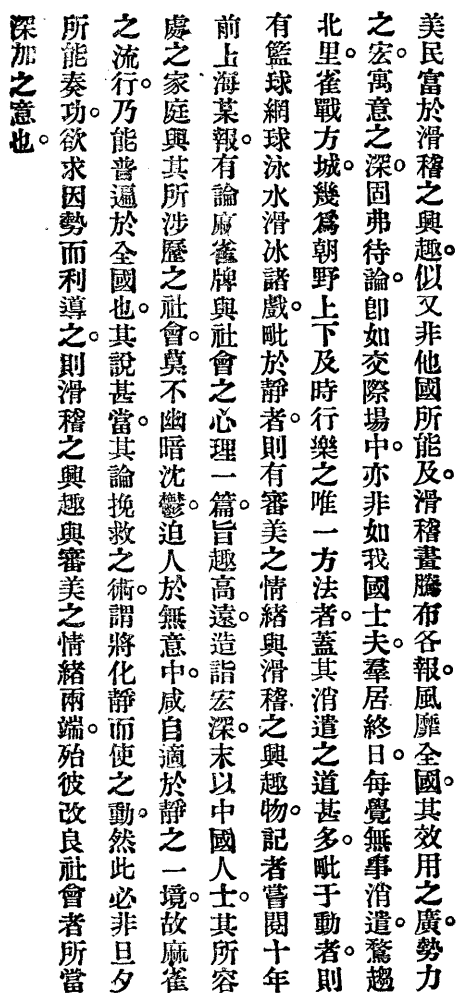 美民富於滑稽之興趣。似又非他國所能及。滑稽畫騰布各報。風靡全國。其效用之廣。勢力
之宏。寓意之深。固弗待論。卽如交際場中。亦非如我國士夫。羣居終日。每覺無事消遣。騖趨
北里。雀戰方城。幾爲朝野上下及時行樂之唯一方法者。蓋其消遣之道甚多。毗于動者。則
有籃球網球泳水滑冰諸戲。毗於靜者。則有審美之情緒與滑稽之興趣物。記者嘗閱十年
前上海某報。有論麻雀牌與社會之心理一篇。旨趣高遠。造詣宏深。末以中國人士。其所容
處之家庭與其所涉歷之社會。莫不幽暗沈鬱。迫人於無意中。咸自適於靜之一境。故麻雀
之流行。乃能普遍於全國也。其說甚當。其論挽救之術。謂將化靜而使之動。然此必非旦夕
所能奏功。欲求因勢而利導之。則滑稽之興趣與審美之情緒兩端。殆彼改良社會者所當
深加之意也。